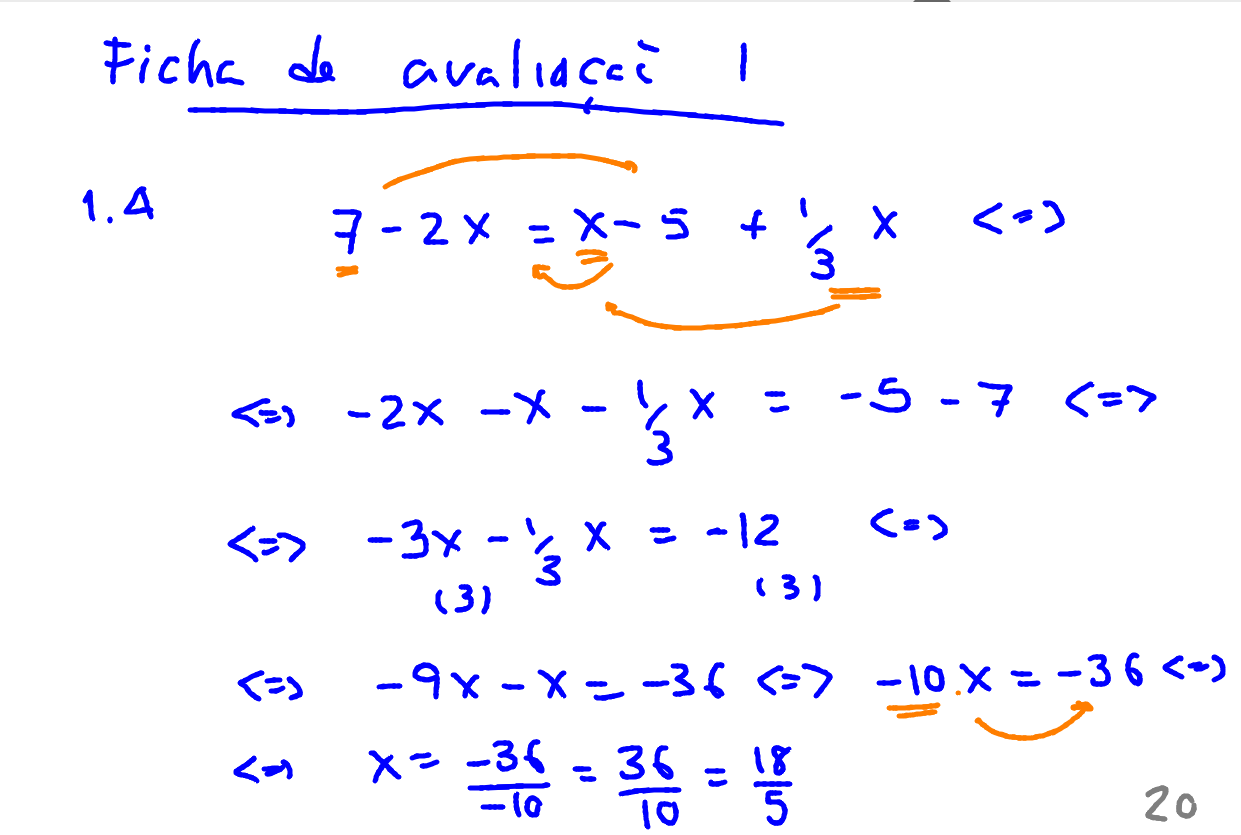 Ficha de avaliação 1
1.4 7 - 2x = x - 5 + 1/3 x <=>
<=> -2x - x - 1/3 x = -5 - 7 <=>
<=> -3x - 1/3 x = -12 <=>
(3) (3)
<=> -9x - x = -36 <=> -10.x = -36 <=>
<=> x = -36/-10 = 36/10 = 18/5
20